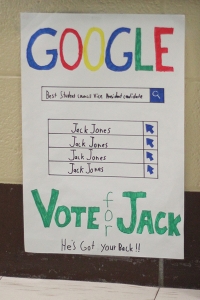 GOOGLE
Best Student Council Vice President candidate
Jack Jones
Jack Jones
Jack Jones
Jack Jones
VOTE for JACK
He's Got Your Back!!